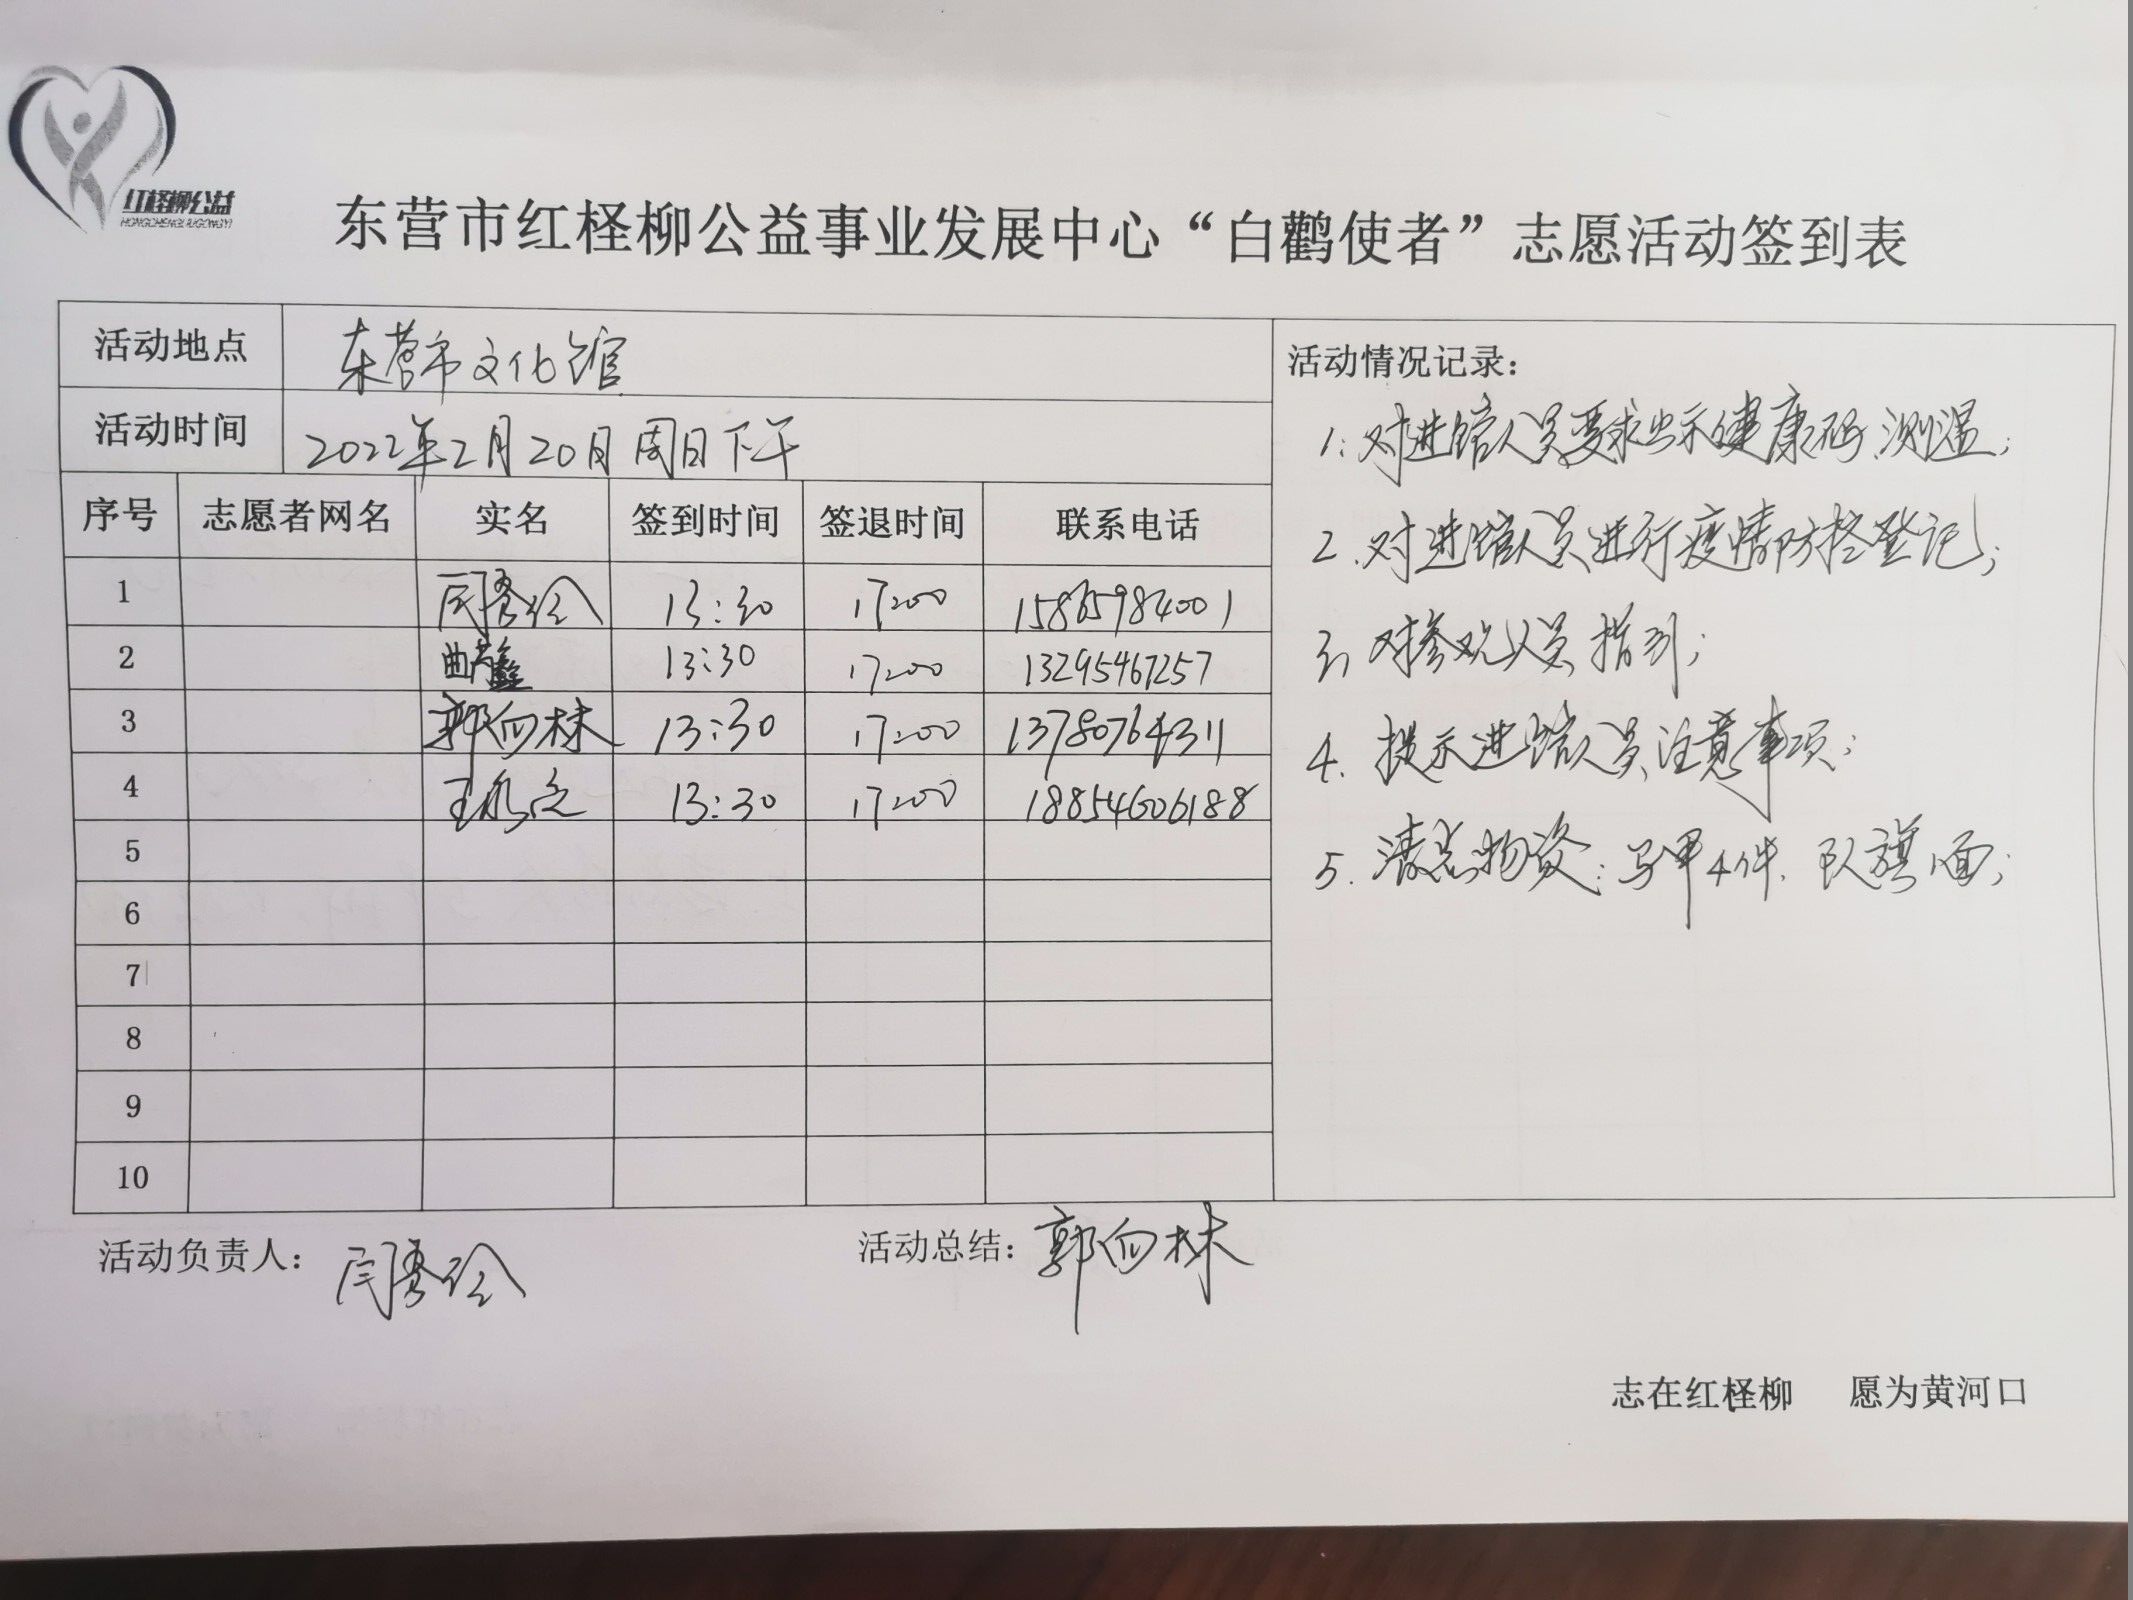 红柽柳公益
HONGCHENGLIUGONGYI
东营市红柽柳公益事业发展中心“白鹳使者”志愿活动签到表
活动地点 东营市文化馆
活动时间 2022年2月20日周日下午
序号 志愿者网名 实名 签到时间 签退时间 联系电话
1 闫秀玲 13:30 17:00
2 曲 13:30 17:00 13295467257
3 郭向林 13:30 17:00 13780764311
4 王 13:30 17:00 18854606188
5
6
7
8
9
10
活动情况记录：
1.对进馆人员要求出示健康码、测温；
2.对进馆人员进行疫情防控登记；
3、对参观人员指引；
4.提示进馆人员注意事项；
5.清点物资：马甲4件.队旗1面；
活动负责人：闫秀玲 活动总结：郭向林
志在红柽柳 愿为黄河口